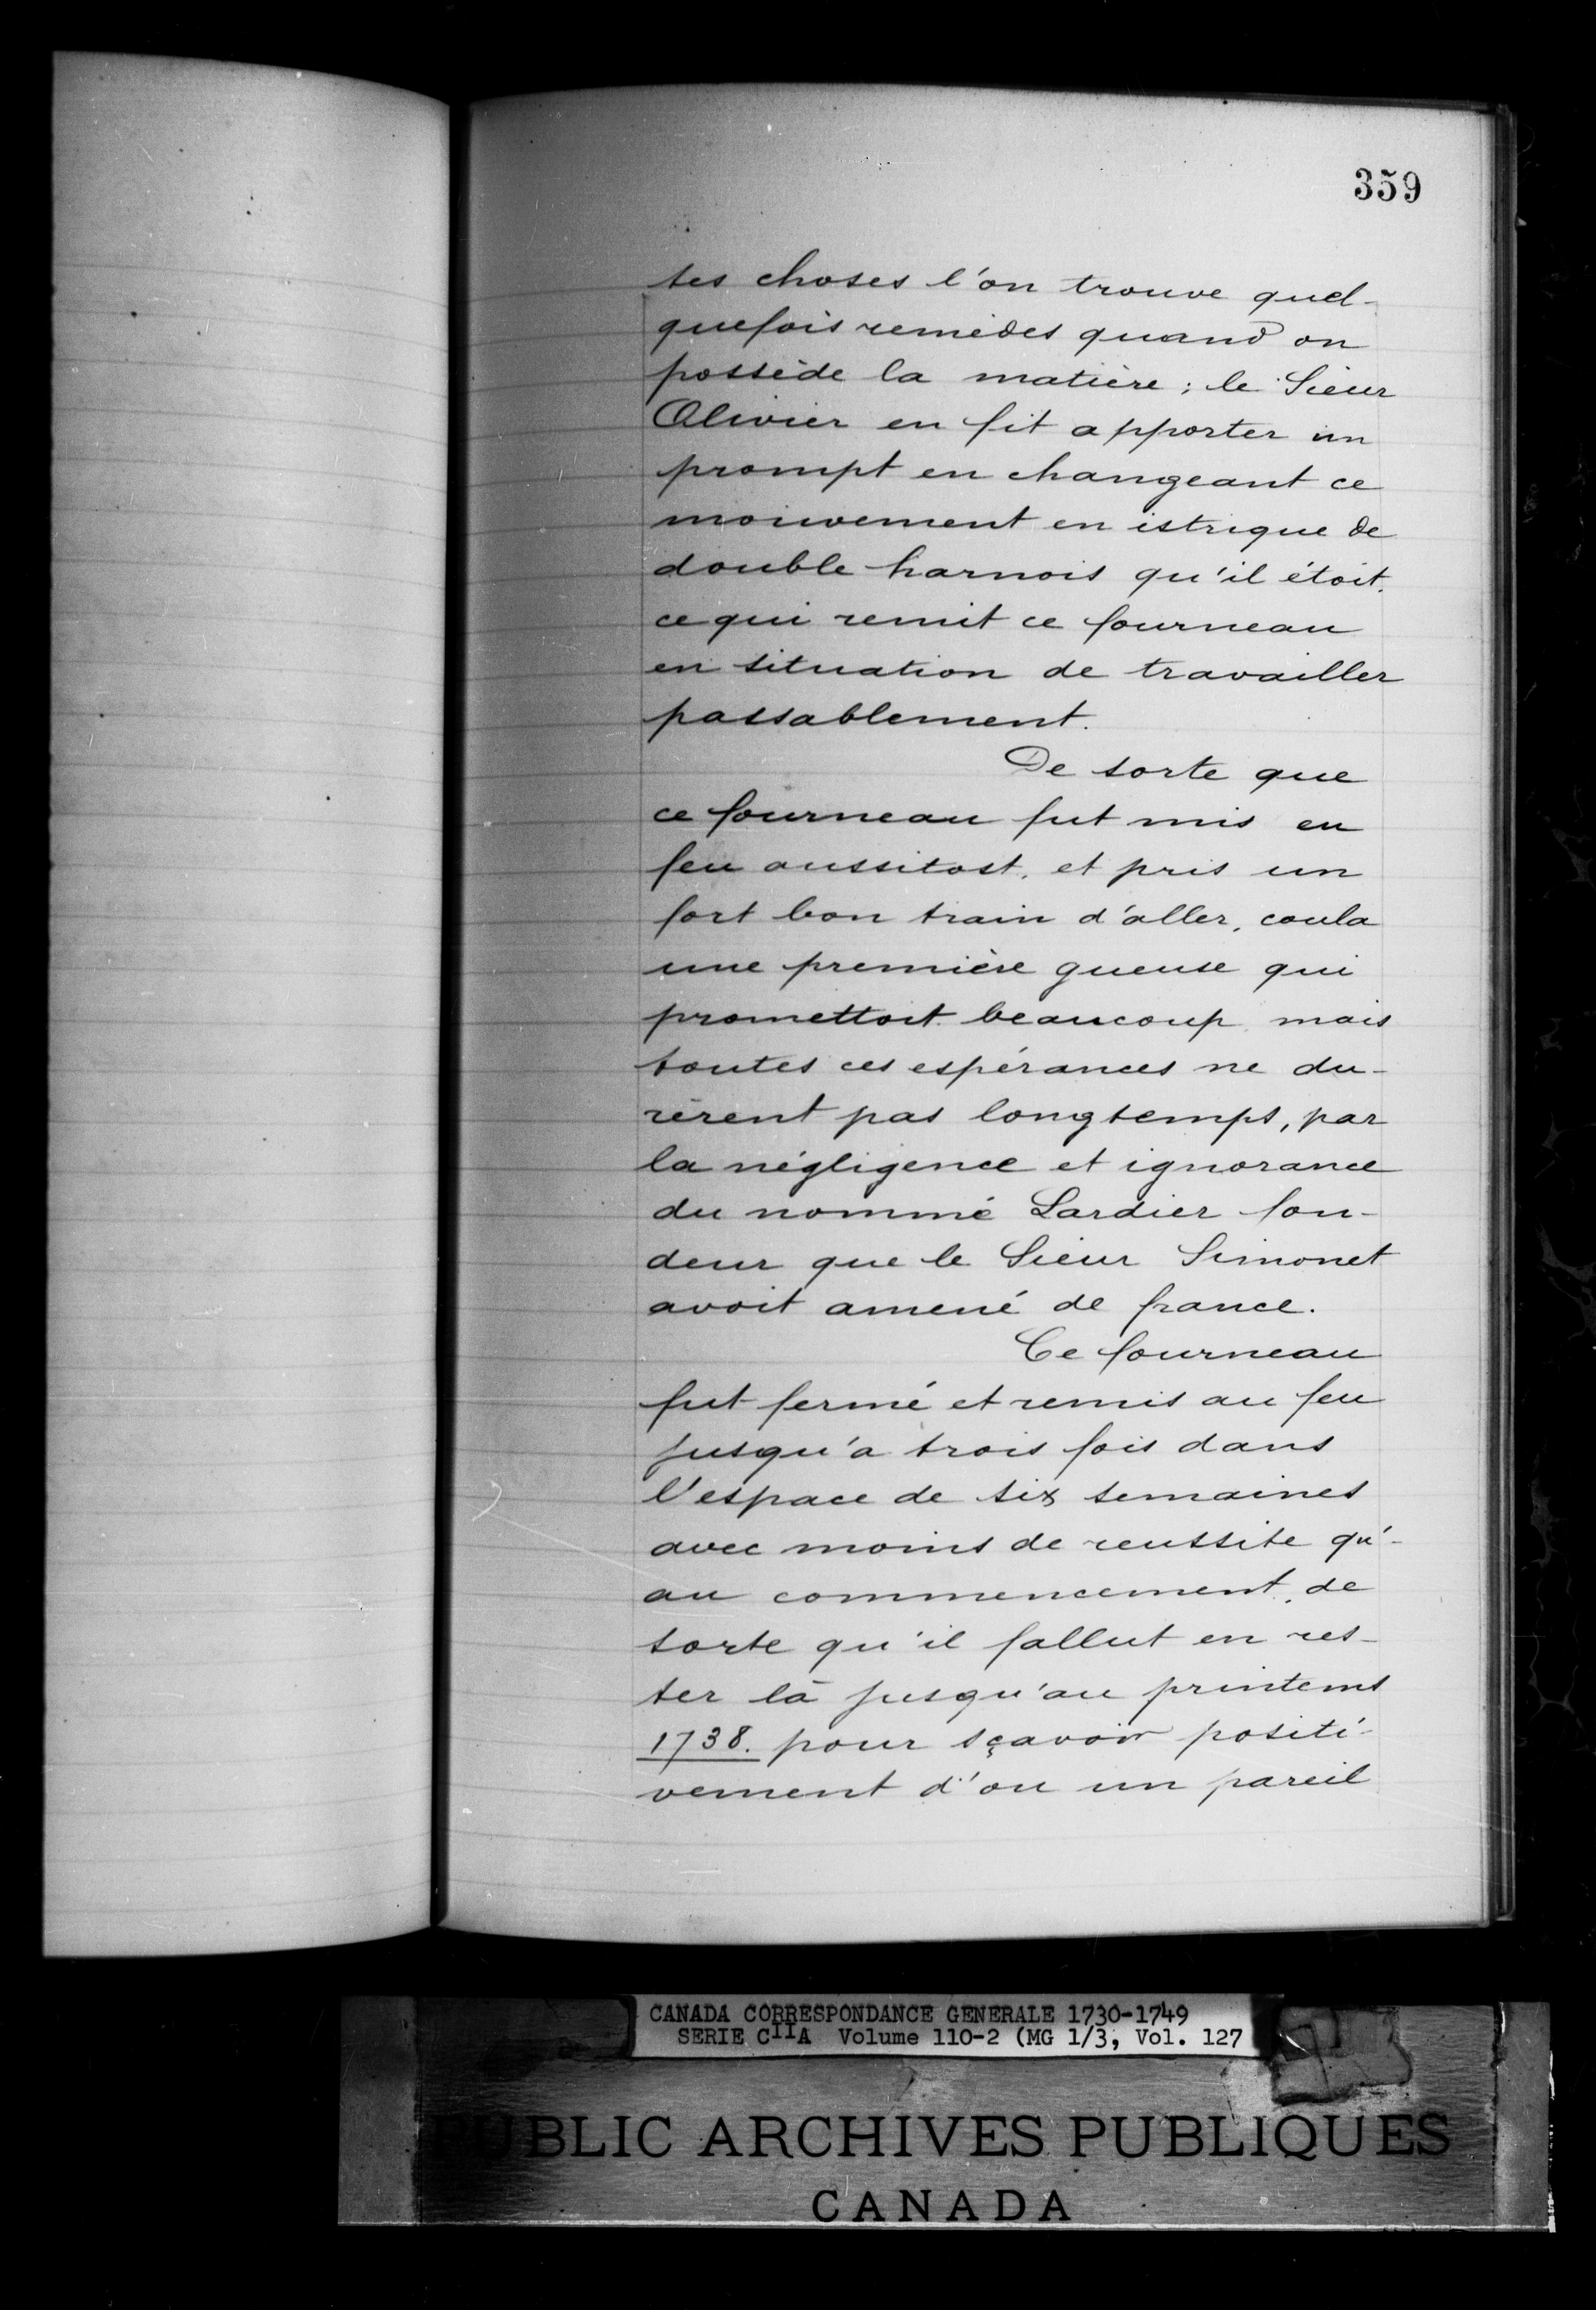 359
tes choses l'on trouve quel-
quefois remèdes quand on
possède la matière; le Sieur
Olivier en fit apporter un
prompt en changeant ce
mouvement en istrique de
double harnois qu'il étoit.
ce qui remit ce fourneau
en situation de travailler
passablement.
De sorte que
ce fourneau fut mis en
feu aussitost, et pris un
fort bon train d'aller, coula
une première gueuse qui
promettoit beaucoup mais
toutes ces espérances ne du-
rèrent pas longtemps, par
la négligence et ignorance
du nommé Lardier fon-
deur que le Sieur Simonet
avoit amené de france.
Ce fourneau
fut fermé et remis au feu
jusqu'a trois fois dans
l'espace de six semaines
avec moins de reussite qu'-
au commencement, de
sorte qu'il fallut en res-
ter là jusqu'au printems
1738. pour sçavoir positi-
vement d'ou un pareil
CANADA CORRESPONDANCE GENERALE 1730-1749
SERIE CIIA Volume 110-2 (MG 1/3, Vol. 127
PUBLIC ARCHIVES PUBLIQUES
CANADA